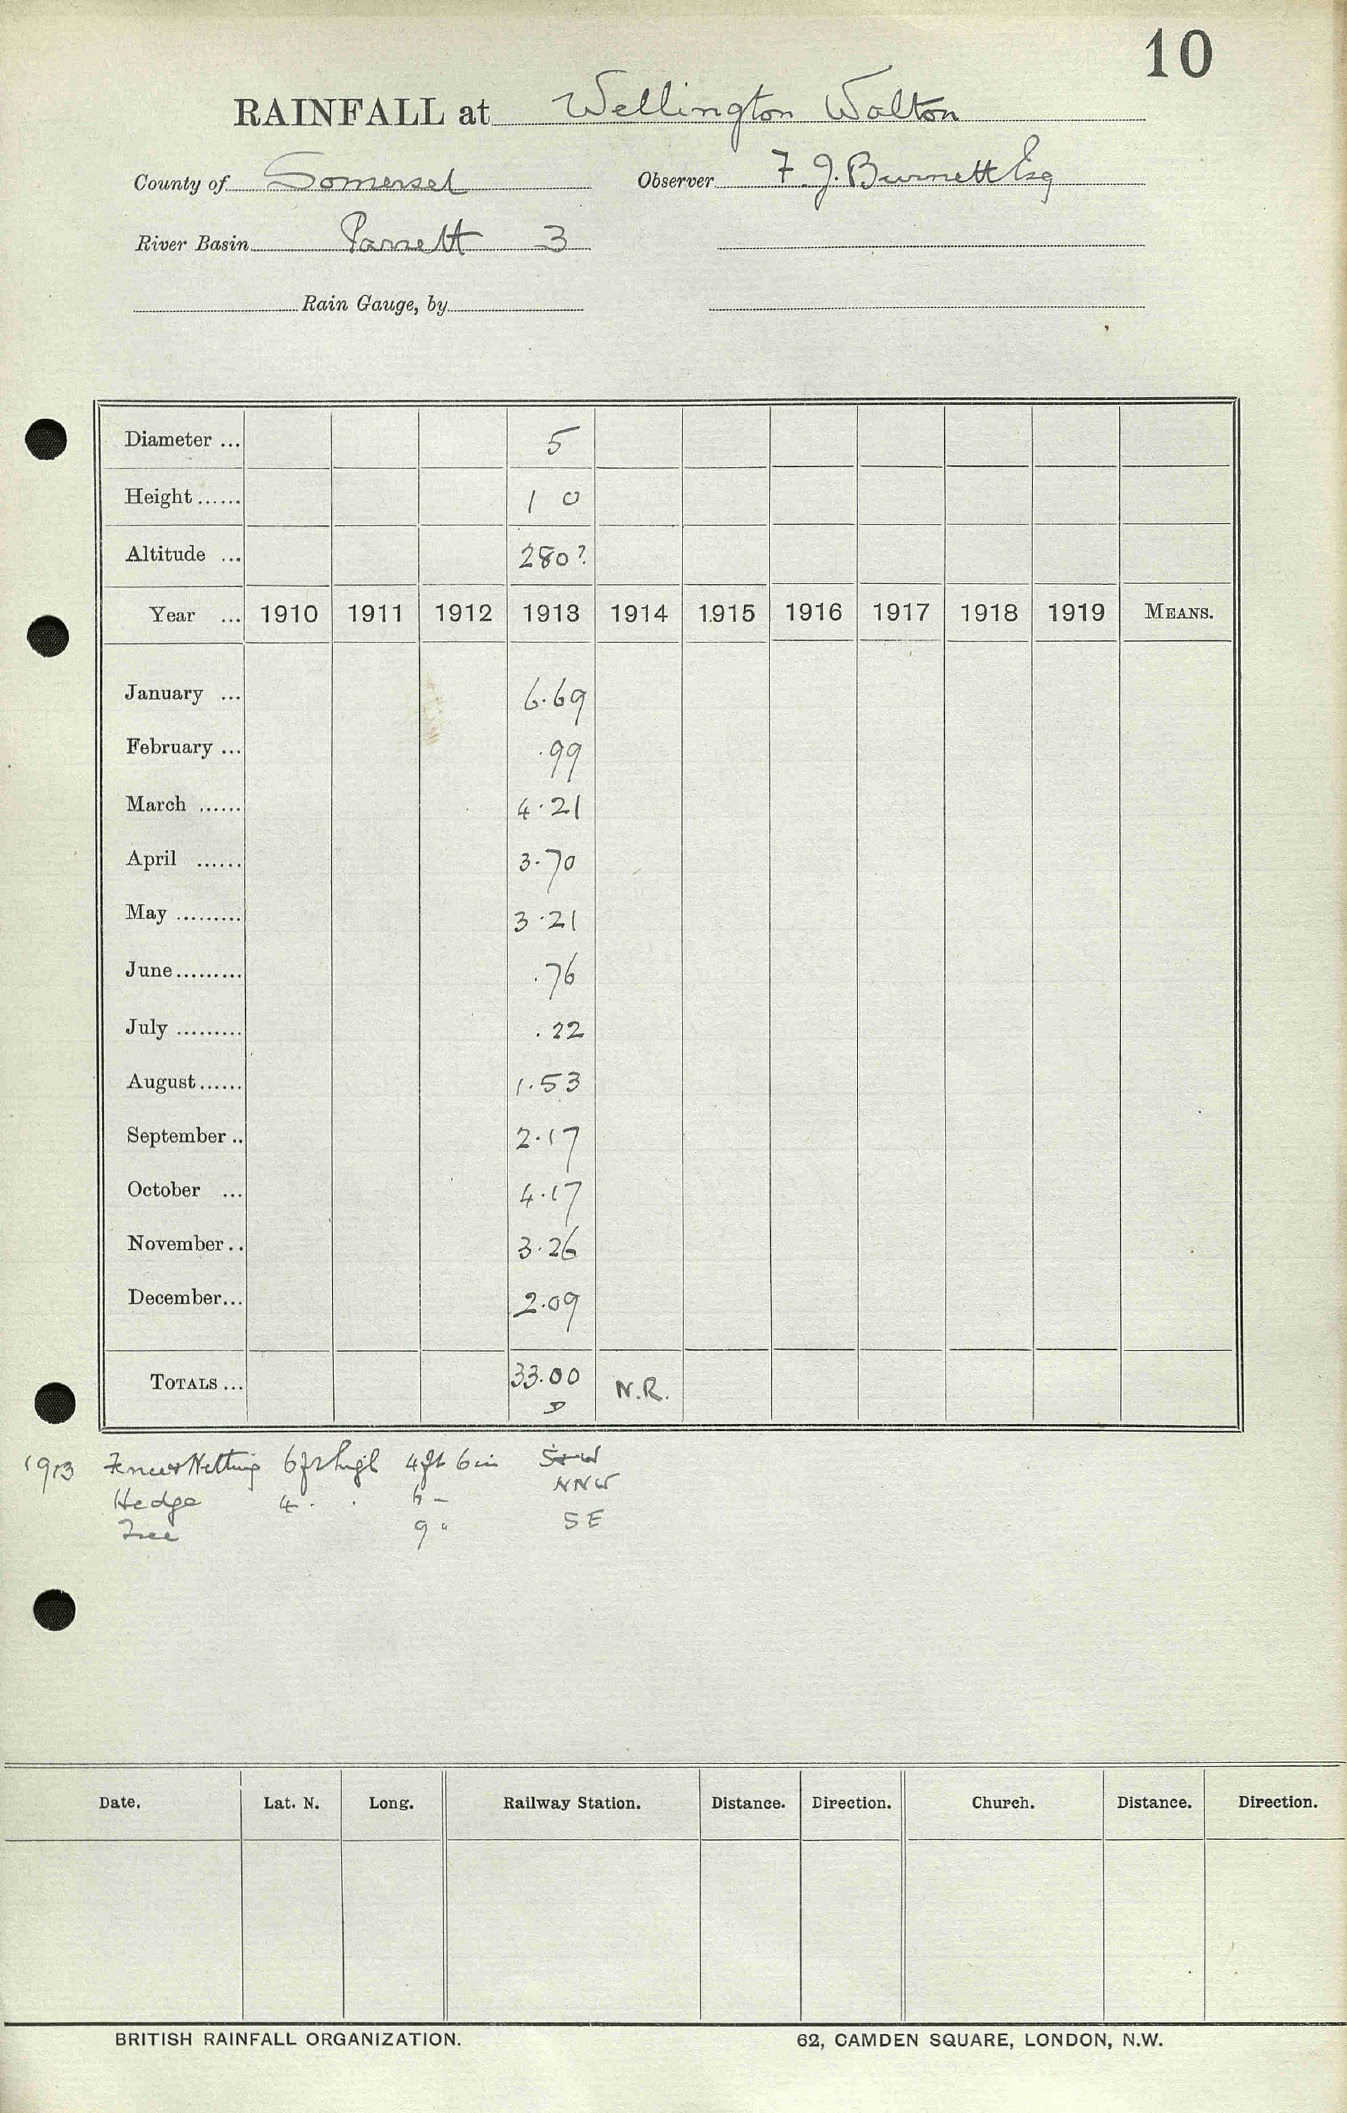 10
RAINFALL at Wellington Walton
County of Somerset Observer F J. Burnett Esq
River Basin Parrett 3
Rain Gauge, by
Diameter ... 5
Height ...... 1 0
Altitude ... 280?
Year ... 1910 1911 1912 1913 1914 1915 1916 1917 1918 1919 MEANS.
January ... 6.69
February ... .99
March ...... 4.21
April ...... 3.70
May ......... 3.21
June ......... .76
July ......... .22
August ...... 1.53
September .. 2.17
October ... 4.17
November .. 3.26
December ... 2.09
TOTALS ... 33.00 N.R.
1913 Fence & Netting 6 ft high 4 ft 6 in
Hedge 4 6 NNW
Tree 9 " SE
Date. Lat. N. Long. Railway Station. Distance. Direction. Church. Distance. Direction.
BRITISH RAINFALL ORGANIZATION. 62, CAMDEN SQUARE, LONDON, N.W.